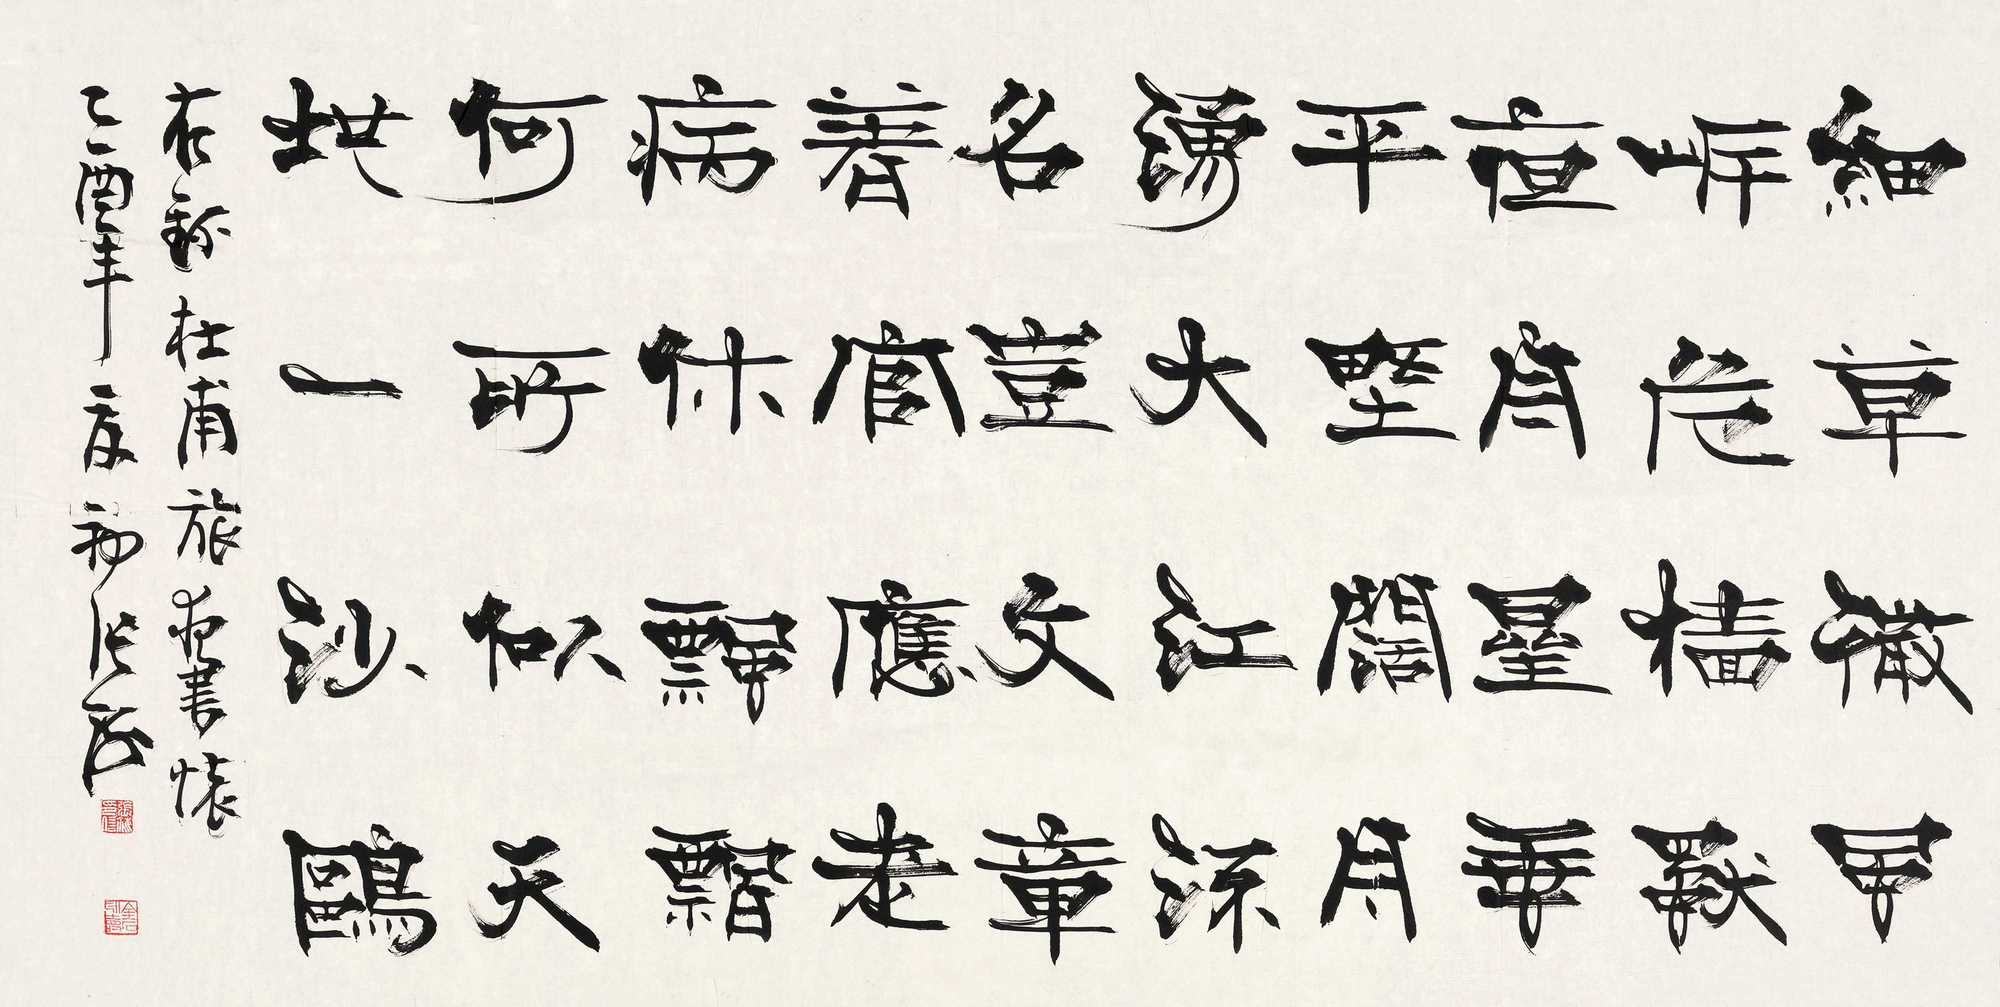 細草微風
岸危檣獨
夜舟星垂
平野闊月
湧大江流
名豈文章
著官應老
病休飄飄
何所似天
地一沙鷗
右錄杜甫旅夜書懷
乙酉年夏初張